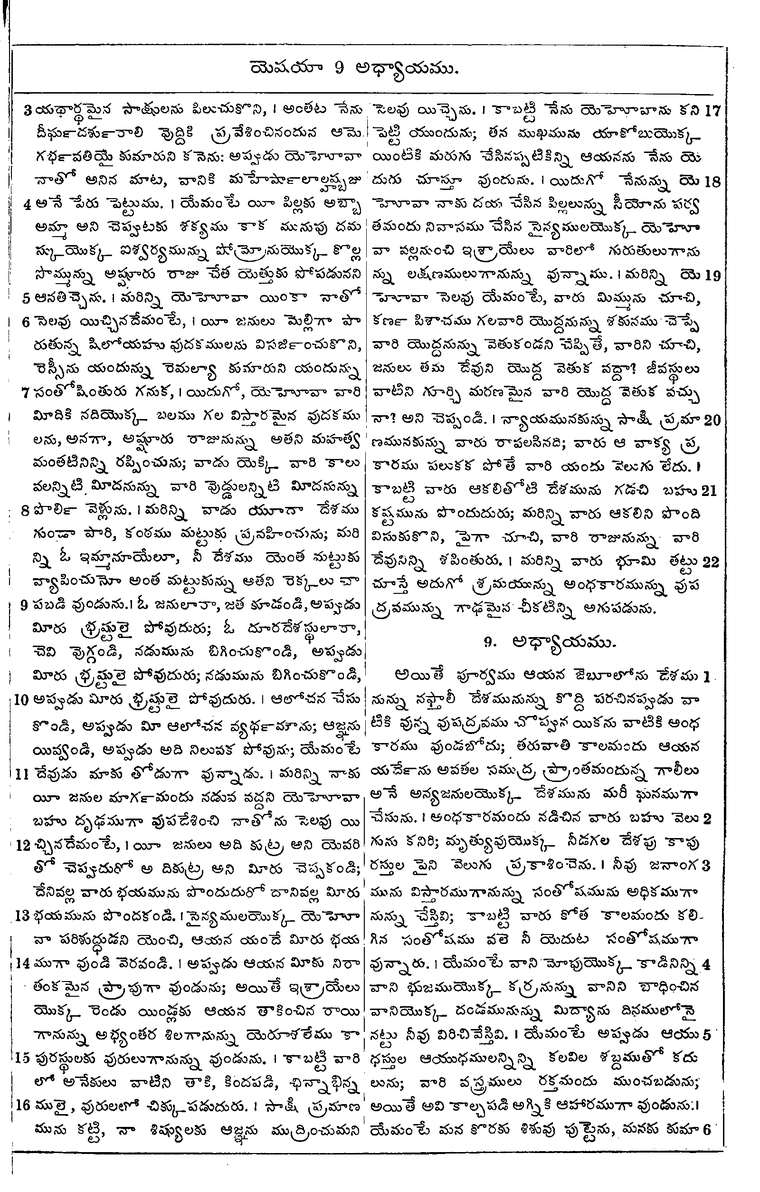 యెషయా 9 అధ్యాయము.
3 యథార్థమైన సాక్షులను పిలుచుకొని, । అంతట నేను
దీర్ఘదర్శురాలి వొద్దికి ప్రవేశించినందున ఆమె
గర్భవతియై కుమారుని కనెను: అప్పుడు యెహోవా
నాతో అనిన మాట, వానికి మహేర్‌షాలాల్హాష్బజు
4 అనే పేరు పెట్టుము. । యేమంటే యీ పిల్లకు అబ్బా
అమ్మా అని చెప్పుటకు శక్యము కాక మునుపు దమ
స్కుయొక్క ఐశ్వర్యమున్ను షోమ్రోనుయొక్క కొల్ల
సొమ్మున్ను అష్షూరు రాజు చేత యెత్తుకు పోపడునని
5 ఆనతిచ్చెను. । మరిన్ని యెహోవా యింకా నాతో
6 సెలవు యిచ్చినదేమంటే, । యీ జనులు మెల్లిగా పా
రుతున్న షిలోయహు వుదకములను విసర్జించుకొని,
రెస్సీను యందున్ను రెమల్యా కుమారుని యందున్ను
7 సంతోషింతురు గనుక, । యిదుగో, యెహోవా వారి
మీదికి నదియొక్క బలము గల విస్తారమైన వుదకము
లను, అనగా, అష్షూరు రాజునున్ను అతని మహత్వ
మంతటినిన్ని రప్పించును; వాడు యెక్కి వారి కాలు
వలన్నిటి మీదనున్ను వారి వొడ్డులన్నిటి మీదనున్ను
8 పొర్లి వెళ్లును. । మరిన్ని వాడు యూదా దేశము
గుండా పారి, కంఠము మట్టుకు ప్రవహించును; మరి
న్ని ఓ ఇమ్మానూయేలూ, నీ దేశము యెంత మట్టుకు
వ్యాపించునో అంత మట్టుకున్ను అతని రెక్కలు చా
9 పబడి వుండును. । ఓ జనులారా, జత కూడండి, అప్పుడు
మీరు భ్రష్టులై పోవుదురు; ఓ దూరదేశస్థులారా,
చెవి వొగ్గండి, నడుమును బిగించుకొండి, అప్పుడు
మీరు భ్రష్టులై పోవుదురు; నడుమును బిగించుకొండి,
10 అప్పుడు మీరు భ్రష్టులై పోవుదురు. । ఆలోచన చేసు
కొండి, అప్పుడు మీ ఆలోచన వ్యర్థమౌను; ఆజ్ఞను
యివ్వండి, అప్పుడు అది నిలువక పోవును; యేమంటే
11 దేవుడు మాకు తోడుగా వున్నాడు. । మరిన్ని నాకు
యీ జనుల మార్గమందు నడువ వద్దని యెహోవా
బహు దృఢముగా వుపదేశించి నాతోను సెలవు యి
12 చ్చినదేమంటే, । యీ జనులు అది కుట్ర అని యెవరి
తో చెప్పుదురో అ దికుట్ర అని మీరు చెప్పకండి;
దేనివల్ల వారు భయమును పొందుదురో దానివల్ల మీరు
13 భయమును పొందకండి. । సైన్యములయొక్క యెహో
వా పరిశుద్ధుడని యెంచి, ఆయన యందే మీరు భయ
14 ముగా వుండి వెరవండి. । అప్పుడు ఆయన మీకు నిరా
తంకమైన ప్రాపుగా వుండును; అయితే ఇశ్రాయేలు
యొక్క రెండు యిండ్లకు ఆయన తాకించిన రాయి
గానున్ను అభ్యంతర శిలగానున్ను యెరూశలేము కా
15 పురస్థులకు వురులుగానున్ను వుండును. । కాబట్టి వారి
లో అనేకులు వాటిని తాకి, కిందపడి, ఛిన్నాభిన్న
16 ములై, వురులలో చిక్కు పడుదురు. । సాక్షి ప్రమాణ
మును కట్టి, నా శిష్యులకు ఆజ్ఞను ముద్రించుమని
సెలవు యిచ్చెను. । కాబట్టి నేను యెహోవాను కని 17
పెట్టి యుందును; తన ముఖమును యాకోబుయొక్క
యింటికి మరుగు చేసినప్పటికిన్ని ఆయనను నేను యె
దురు చూస్తూ వుందును. । యిదుగో నేనున్ను యె 18
హోవా నాకు దయ చేసిన పిల్లలున్ను సీయోను పర్వ
తమందు నివాసము చేసిన సైన్యములయొక్క యెహో
వా వల్లనుంచి ఇశ్రాయేలు వారిలో గురుతులుగాను
న్ను లక్షణములుగానున్ను వున్నాము. । మరిన్ని యె 19
హోవా సెలవు యేమంటే, వారు మిమ్మును చూచి,
కర్ణ పిశాచము గలవారి యొద్దనున్ను శకునము చెప్పే
వారి యొద్దనున్ను వెతుకండని చెప్పితే, వారిని చూచి,
జనులు తమ దేవుని యొద్ద వెతుక వద్దా? జీవస్థులు
వాటిని గూర్చి మరణమైన వారి యొద్ద వెతుక వచ్చు
నా? అని చెప్పండి. । న్యాయమునకున్ను సాక్షి ప్రమా 20
ణమునకున్ను వారు రావలసినది; వారు ఆ వాక్య ప్ర
కారము పలుకక పోతే వారి యందు వెలుగు లేదు. ।
కాబట్టి వారు ఆకలితోటి దేశమును గడచి బహు 21
కష్టమును పొందుదురు; మరిన్ని వారు ఆకలిని పొంది
విసుకుకొని, పైగా చూచి, వారి రాజునున్ను వారి
దేవునిన్ని శపింతురు. । మరిన్ని వారు భూమి తట్టు 22
చూస్తే అదుగో శ్రమయున్ను అంధకారమున్ను వుప
ద్రవమున్ను గాఢమైన చీకటిన్ని అగుపడును.
9. అధ్యాయము.
అయితే పూర్వము ఆయన జెబూలోను దేశము 1
నున్ను నఫ్తాలీ దేశమునున్ను కొద్ది పరచినప్పుడు వా
టికి వున్న వుపద్రవము చొప్పున యికను వాటికి అంధ
కారము వుండబోదు; తరువాతి కాలమందు ఆయన
యర్దేను అవతల సముద్ర ప్రాంతమందున్న గాలీలు
అనే అన్యజనులయొక్క దేశమును మరీ ఘనముగా
చేసును. । అంధకారమందు నడిచిన వారు బహు వెలు 2
గును కనిరి; మృత్యువుయొక్క నీడగల దేశపు కాపు
రస్తుల పైని వెలుగు ప్రకాశించెను. । నీవు జనాంగ 3
మును విస్తారముగానున్ను సంతోషమును అధికముగా
నున్ను చేస్తివి; కాబట్టి వారు కోత కాలమందు కలి-
గిన సంతోషము వలె నీ యెదుట సంతోషముగా
వున్నారు. । యేమంటే వాని మోపుయొక్క కాడినిన్ని 4
వాని భుజముయొక్క కర్రనున్ను వానిని బాధించిన
వానియొక్క దండమునున్ను మిద్యాను దినములోనై
నట్టు నీవు విరిచివేస్తివి. । యేమంటే అప్పుడు ఆయు 5
ధస్తుల ఆయుధములన్నిన్ని కలవిల శబ్దముతో కదు
లును; వారి వస్త్రములు రక్తమందు ముంచబడును;
అయితే అవి కాల్చపడి అగ్నికి ఆహారముగా వుండును. ।
యేమంటే మన కొరకు శిశువు పుట్టెను, మనకు కుమా 6